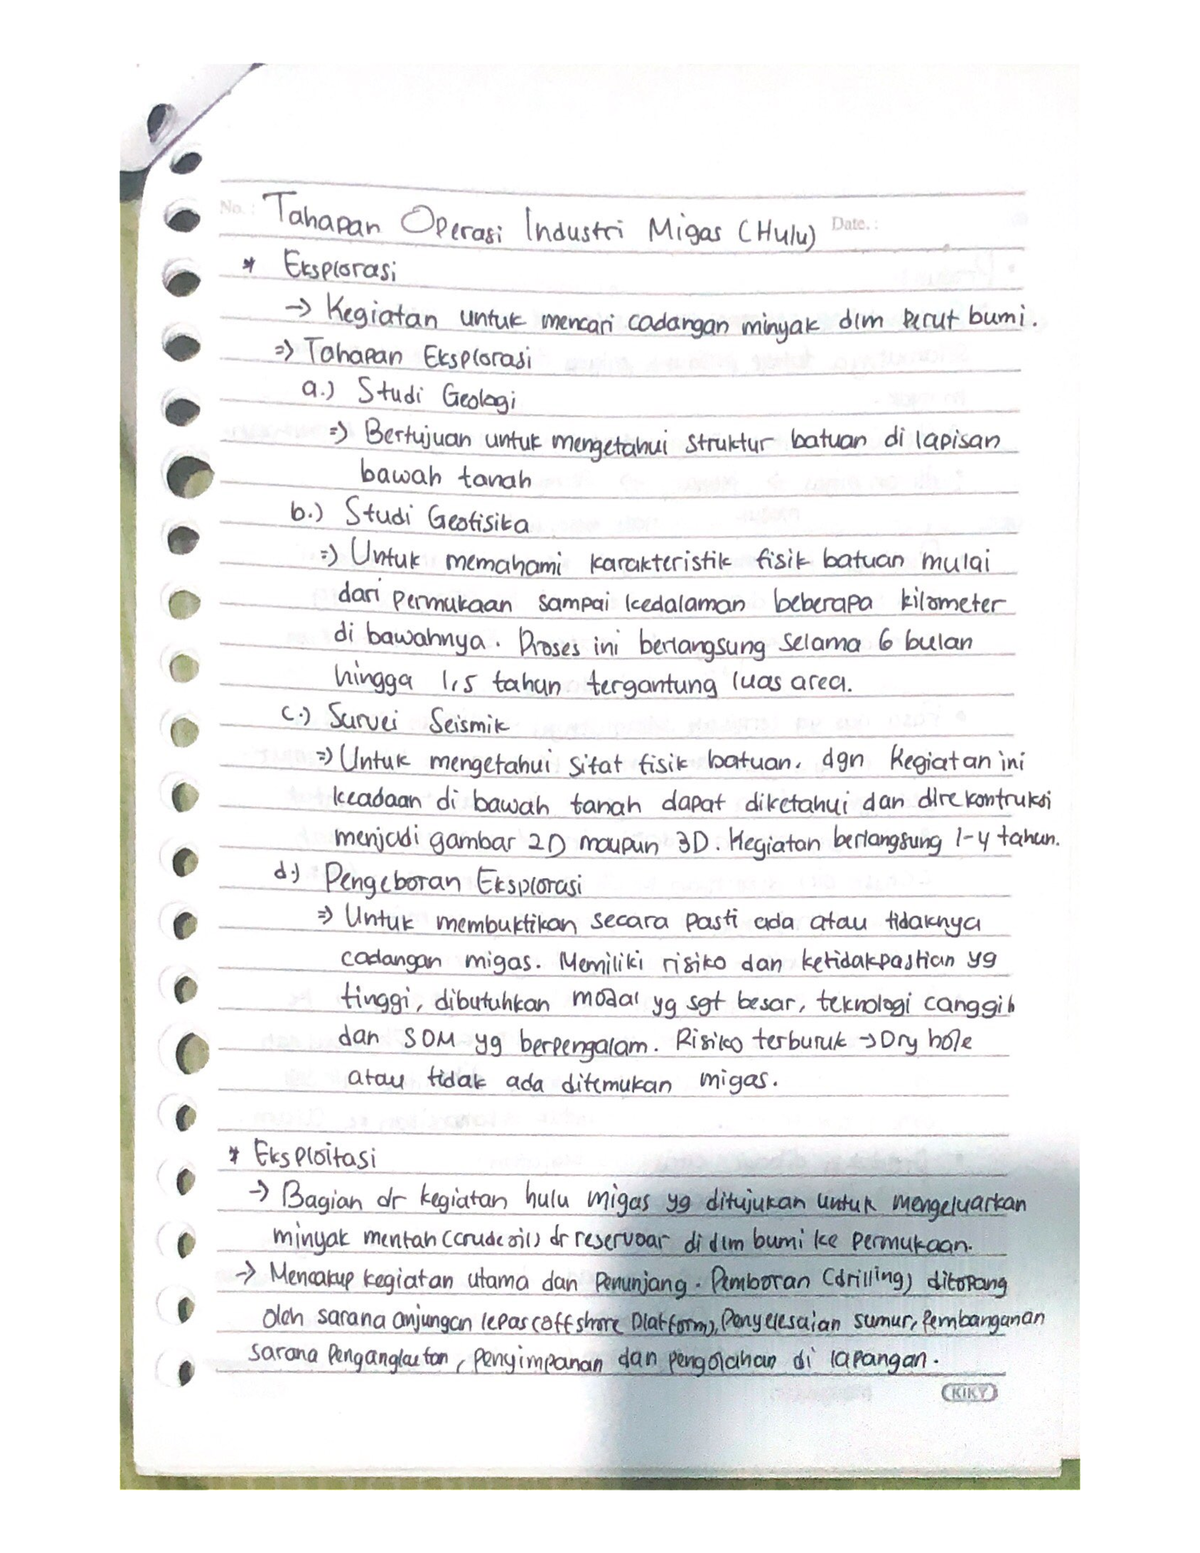 No. : Tahapan Operasi Industri Migas (Hulu) Date. :
* Eksplorasi
→ Kegiatan untuk mencari cadangan minyak dlm perut bumi.
⇒ Tahapan Eksplorasi
a.) Studi Geologi
⇒ Bertujuan untuk mengetahui struktur batuan di lapisan
bawah tanah
b.) Studi Geofisika
⇒ Untuk memahami karakteristik fisik batuan mulai
dari permukaan sampai kedalaman beberapa kilometer
di bawahnya. Proses ini berlangsung selama 6 bulan
hingga 1,5 tahun tergantung luas area.
c.) Survei Seismik
⇒ Untuk mengetahui sifat fisik batuan. dgn Kegiatan ini
keadaan di bawah tanah dapat diketahui dan direkontruksi
menjadi gambar 2D maupun 3D. Kegiatan berlangsung 1-4 tahun.
d.) Pengeboran Eksplorasi
⇒ Untuk membuktikan secara pasti ada atau tidaknya
cadangan migas. Memiliki risiko dan ketidakpastian yg
tinggi, dibutuhkan modal yg sgt besar, teknologi canggih
dan SDM yg berpengalam. Risiko terburuk → Dry hole
atau tidak ada ditemukan migas.
* Eksploitasi
→ Bagian dr kegiatan hulu migas yg ditujukan untuk mengeluarkan
minyak mentah (crude oil) dr reservoar di dlm bumi ke permukaan.
→ Mencakup kegiatan utama dan penunjang. Pemboran (drilling) ditopang
oleh sarana anjungan lepas (offshore platform), Penyelesaian sumur, Pembanganan
sarana Pengangkutan, penyimpanan dan pengolahan di lapangan.
KIKY